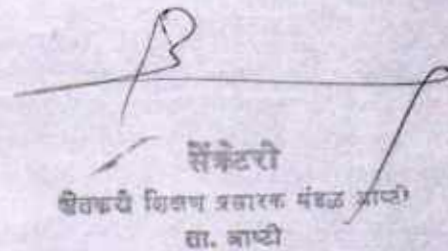 सेक्रेटरी
शेतकरी शिक्षण प्रसारक मंडळ आष्टी
ता. आष्टी